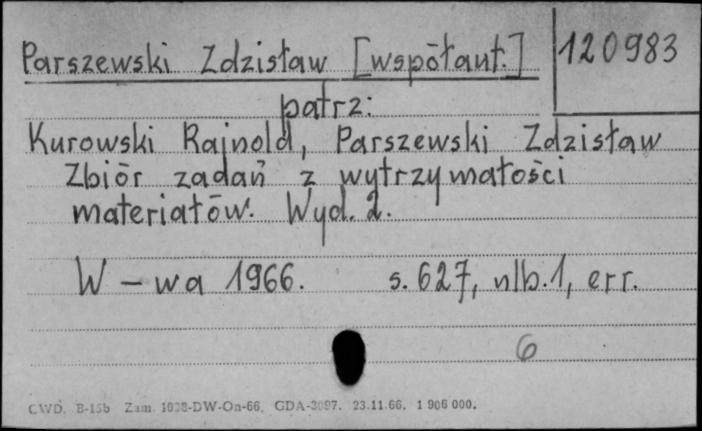 Parszewski Zdzisław [współaut.]
120983
patrz:
Kurowski Rajnold, Parszewski Zdzisław
Zbiór zadań z wytrzymałości
materiałów. Wyd. 2.
W-wa 1966. s. 627, nlb. 1, err.
6
CWD. B-15b Zam. 1038-DW-On-66. GDA-3097. 23.11.66. 1 906 000.